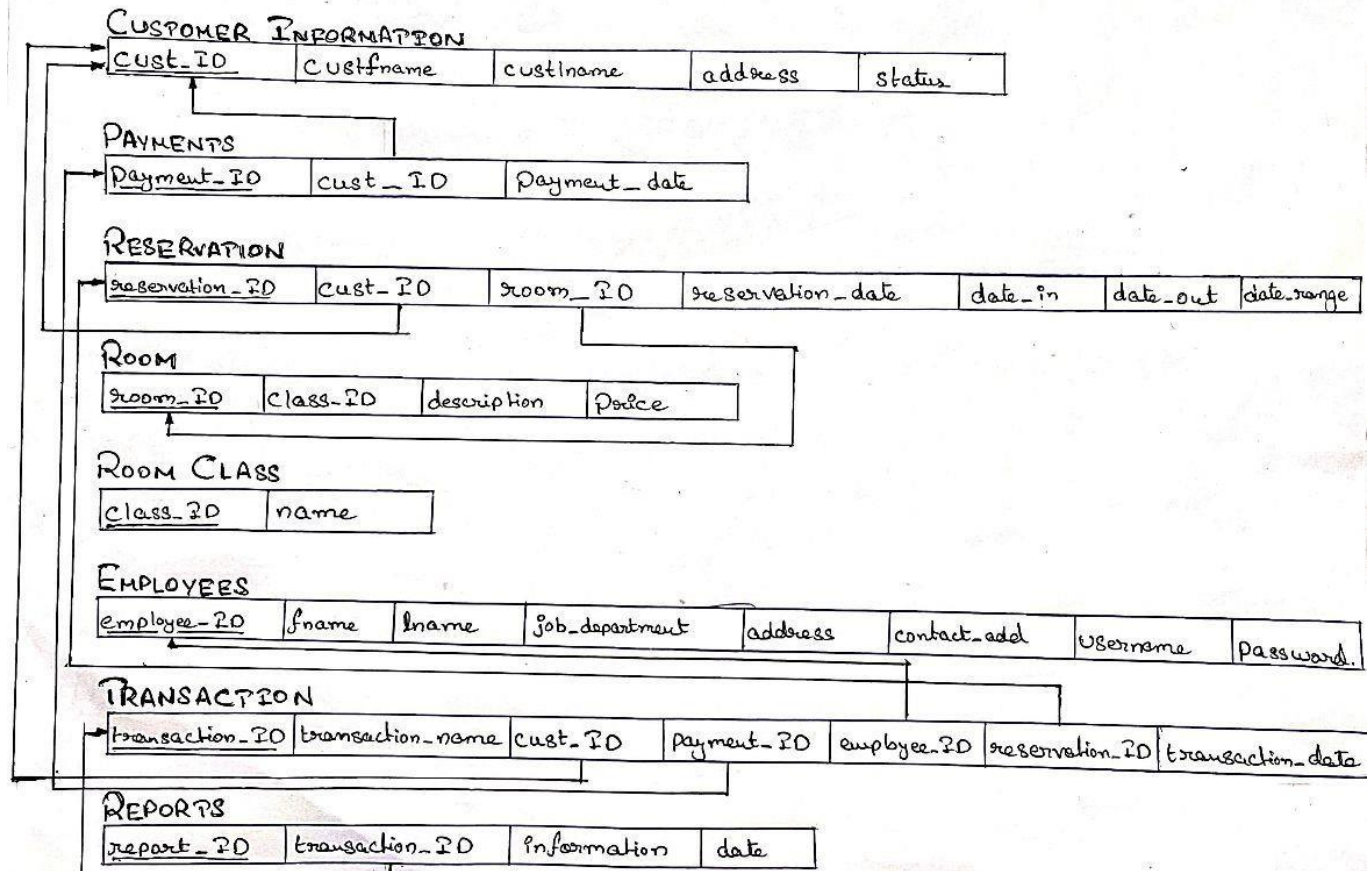 CUSTOMER INFORMATION
cust_ID custfname custlname address status
PAYMENTS
Payment_ID cust_ID Payment_date
RESERVATION
reservation_ID cust_ID room_ID reservation_date date_in date_out date_range
ROOM
room_ID class_ID description Price
ROOM CLASS
class_ID name
EMPLOYEES
employee_ID fname lname job_department address contact_add username Password.
TRANSACTION
transaction_ID transaction_name cust_ID payment_ID employee_ID reservation_ID transaction_date
REPORTS
report_ID transaction_ID information date